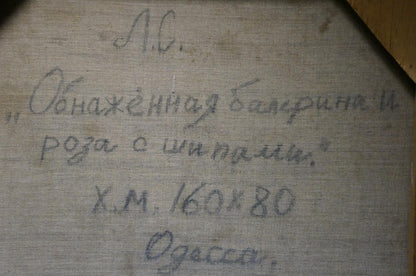 А.С.
„Обнажённая балерина и
роза с шипами."
х.м. 160х80
Одесса.